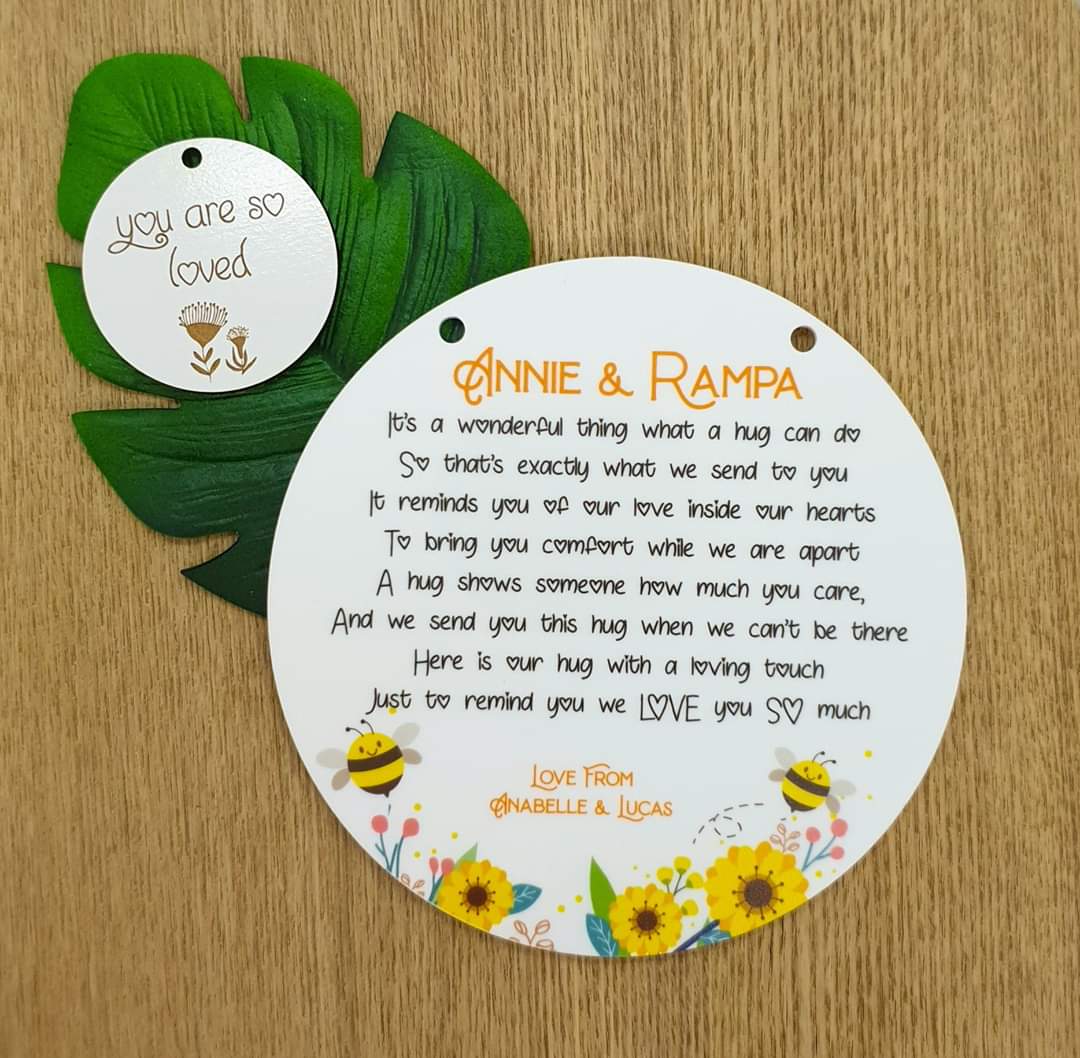 you are so
loved
ANNIE & RAMPA
It's a wonderful thing what a hug can do
So that's exactly what we send to you
It reminds you of our love inside our hearts
To bring you comfort while we are apart
A hug shows someone how much you care,
And we send you this hug when we can't be there
Here is our hug with a loving touch
Just to remind you we LOVE you SO much
LOVE FROM
ANABELLE & LUCAS